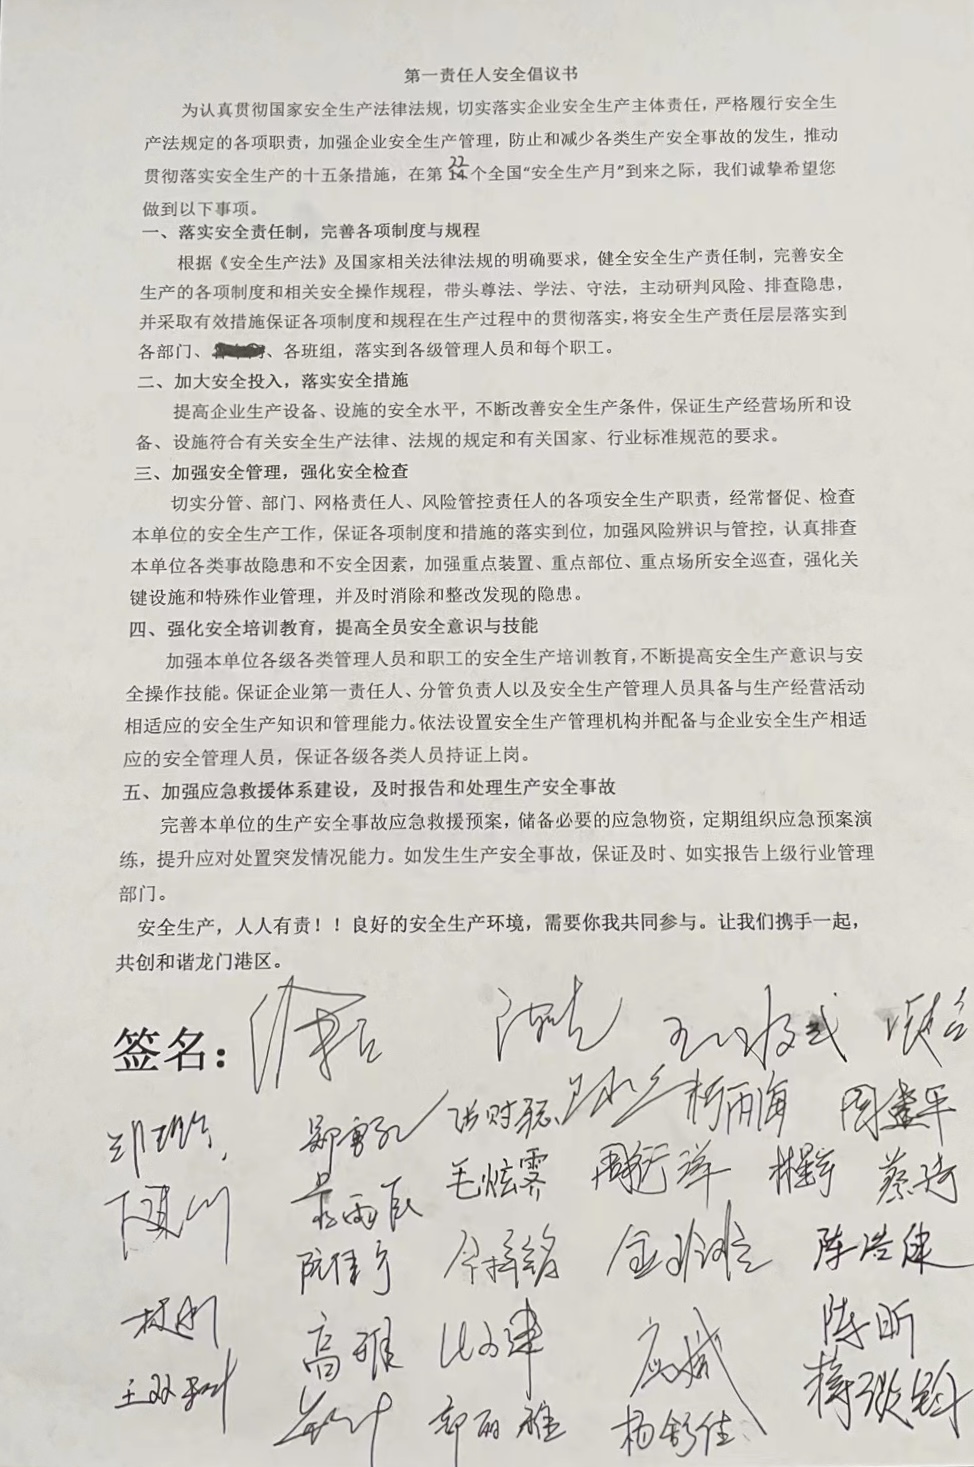 第一责任人安全倡议书
为认真贯彻国家安全生产法律法规，切实落实企业安全生产主体责任，严格履行安全生
产法规定的各项职责，加强企业安全生产管理，防止和减少各类生产安全事故的发生，推动
贯彻落实安全生产的十五条措施，在第22个全国“安全生产月”到来之际，我们诚挚希望您
做到以下事项。
一、落实安全责任制，完善各项制度与规程
根据《安全生产法》及国家相关法律法规的明确要求，健全安全生产责任制，完善安全
生产的各项制度和相关安全操作规程，带头尊法、学法、守法，主动研判风险、排查隐患，
并采取有效措施保证各项制度和规程在生产过程中的贯彻落实，将安全生产责任层层落实到
各部门、、各班组，落实到各级管理人员和每个职工。
二、加大安全投入，落实安全措施
提高企业生产设备、设施的安全水平，不断改善安全生产条件，保证生产经营场所和设
备、设施符合有关安全生产法律、法规的规定和有关国家、行业标准规范的要求。
三、加强安全管理，强化安全检查
切实分管、部门、网格责任人、风险管控责任人的各项安全生产职责，经常督促、检查
本单位的安全生产工作，保证各项制度和措施的落实到位，加强风险辨识与管控，认真排查
本单位各类事故隐患和不安全因素，加强重点装置、重点部位、重点场所安全巡查，强化关
键设施和特殊作业管理，并及时消除和整改发现的隐患。
四、强化安全培训教育，提高全员安全意识与技能
加强本单位各级各类管理人员和职工的安全生产培训教育，不断提高安全生产意识与安
全操作技能。保证企业第一责任人、分管负责人以及安全生产管理人员具备与生产经营活动
相适应的安全生产知识和管理能力。依法设置安全生产管理机构并配备与企业安全生产相适
应的安全管理人员，保证各级各类人员持证上岗。
五、加强应急救援体系建设，及时报告和处理生产安全事故
完善本单位的生产安全事故应急救援预案，储备必要的应急物资，定期组织应急预案演
练，提升应对处置突发情况能力。如发生生产安全事故，保证及时、如实报告上级行业管理
部门。
安全生产，人人有责！！良好的安全生产环境，需要你我共同参与。让我们携手一起，
共创和谐龙门港区。
签名：
洪财聪 柯雨海 周盛平
毛炫霁 蔡琦
阮佳宁 陈浩健
高雅 陈昕
郑丽雅 杨舒佳